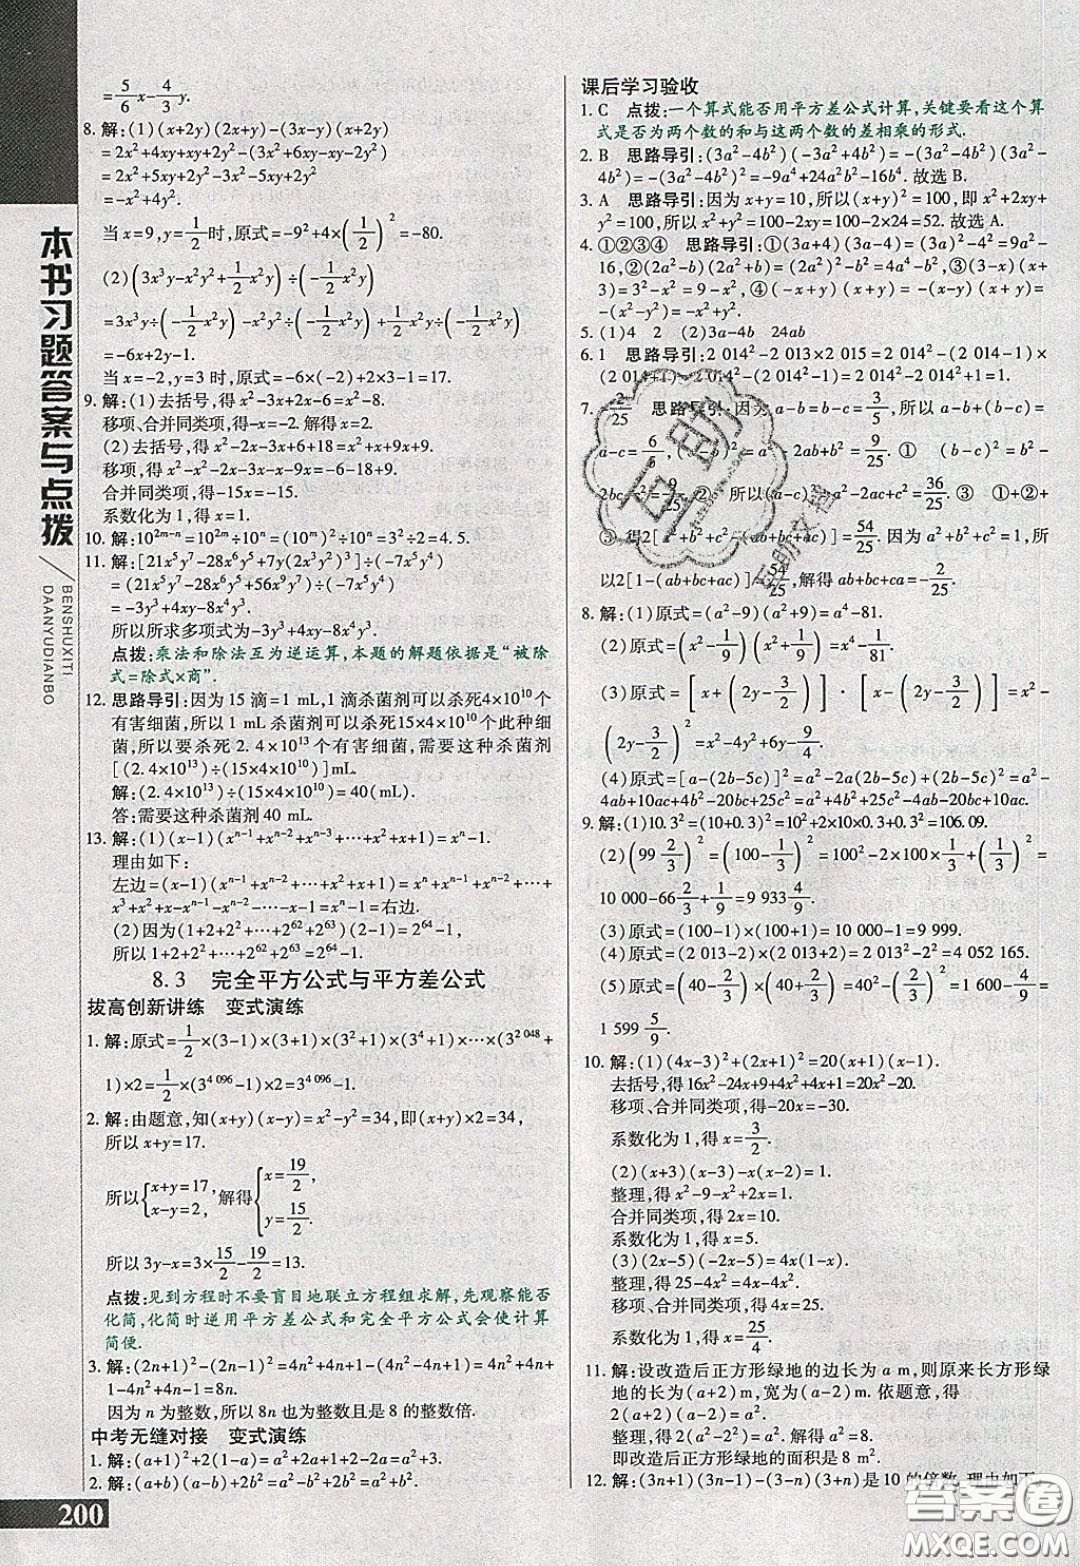 本书习题答案与点拨
BENSHUXITI
DAANYUDIANBO
=5/6x-4/3y.
8. 解:(1)(x+2y)(2x+y)-(3x-y)(x+2y)
=2x²+4xy+xy+2y²-(3x²+6xy-xy-2y²)
=2x²+5xy+2y²-3x²-5xy+2y²
=-x²+4y².
当x=9,y=1/2时,原式=-9²+4×(1/2)²=-80.
(2)(3x³y-x²y²+1/2x²y)÷(-1/2x²y)
=3x³y÷(-1/2x²y)-x²y²÷(-1/2x²y)+1/2x²y÷(-1/2x²y)
=-6x+2y-1.
当x=-2,y=3时,原式=-6×(-2)+2×3-1=17.
9. 解:(1)去括号,得x²-3x+2x-6+6=x²-8.
移项、合并同类项,得-x=-2. 解得x=2.
(2)去括号,得x²-2x-3x+6+18=x²+x+9x+9.
移项,得x²-x²-2x-3x-x-9x=9-6-18.
合并同类项,得-15x=-15.
系数化为1,得x=1.
10. 解:10²ᵐ⁻ⁿ=10²ᵐ÷10ⁿ=(10ᵐ)²÷10ⁿ=3²÷2=4.5.
11. 解:[21x⁵y⁷-28x⁶y⁵+7y(2x³y²)³]÷(-7x⁵y⁴)
=(21x⁵y⁷-28x⁶y⁵+56x⁹y⁷)÷(-7x⁵y⁴)
=-3y³+4xy-8x⁴y³.
所以所求多项式为-3y³+4xy-8x⁴y³.
点拨:乘法和除法互为逆运算,本题的解题依据是“被除
式=除式×商”.
12. 思路导引:因为15滴=1 mL,1滴杀菌剂可以杀死4×10¹⁰个
有害细菌,所以1 mL杀菌剂可以杀死15×4×10¹⁰个此种细
菌,所以要杀死2.4×10¹³个有害细菌,需要这种杀菌剂
[(2.4×10¹³)÷(15×4×10¹⁰)]mL.
解:(2.4×10¹³)÷(15×4×10¹⁰)=40(mL).
答:需要这种杀菌剂40 mL.
13. 解:(1)(x-1)(xⁿ⁻¹+xⁿ⁻²+xⁿ⁻³+⋯+x²+x+1)=xⁿ-1.
理由如下:
左边=(x-1)(xⁿ⁻¹+xⁿ⁻²+⋯+x²+x+1)=xⁿ+xⁿ⁻¹+⋯+
x³+x²+x-xⁿ⁻¹-xⁿ⁻²-⋯-x²-x-1=xⁿ-1=右边.
(2)因为(1+2+2²+⋯+2⁶²+2⁶³)(2-1)=2⁶⁴-1,
所以1+2+2²+⋯+2⁶²+2⁶³=2⁶⁴-1.
8.3 完全平方公式与平方差公式
拔高创新讲练 变式演练
1. 解:原式=1/2×(3-1)×(3+1)×(3²+1)×(3⁴+1)×⋯×(3²⁰⁴⁸
+1)×2=1/2×(3⁴⁰⁹⁶-1)×2=3⁴⁰⁹⁶-1.
2. 解:由题意,知(x+y)(x-y)=x²-y²=34,即(x+y)×2=34,
所以x+y=17.
所以{x+y=17, x-y=2, 解得{x=19/2, y=15/2.
所以3y-x=3×15/2-19/2=13.
点拨:见到方程时不要盲目地联立方程组求解,先观察能否
化简,化简时逆用平方差公式和完全平方公式会使计算
简便.
3. 解:(2n+1)²-(2n-1)²=4n²+4n+1-(4n²-4n+1)=4n²+4n+
1-4n²+4n-1=8n.
因为n为整数,所以8n也为整数且是8的整数倍.
中考无缝对接 变式演练
1. 解:(a+1)²+2(1-a)=a²+2a+1+2-2a=a²+3.
2. 解:(a+b)(a-b)+2b²=a²-b²+2b²=a²+b².
200
课后学习验收
1. C 点拨:一个算式能否用平方差公式计算,关键要看这个算
式是否为两个数的和与这两个数的差相乘的形式.
2. B 思路导引:(3a²-4b²)(-3a²+4b²)=-(3a²-4b²)(3a²-
4b²)=-(3a²-4b²)²=-9a⁴+24a²b²-16b⁴. 故选B.
3. A 思路导引:因为x+y=10,所以(x+y)²=100,即x²+2xy+
y²=100,所以x²+y²=100-2xy=100-2×24=52. 故选A.
4. ①②③④ 思路导引:①(3a+4)(3a-4)=(3a)²-4²=9a²-
16,②(2a²-b)(2a²+b)=(2a²)²-b²=4a⁴-b²,③(3-x)(x+
3)=3²-x²=9-x²,④(-x+y)(x+y)=-(x-y)(x+y)=
-(x²-y²)=-x²+y².
5. (1)4 2 (2)3a-4b 24ab
6. 1 思路导引:2 014²-2 013×2 015=2 014²-(2 014-1)×
(2 014+1)=2 014²-(2 014²-1)=2 014²-2 014²+1=1.
7. -2/25 思路导引:因为a-b=b-c=3/5,所以a-b+(b-c)=
a-c=6/5,(a-b)²=a²-2ab+b²=9/25. ① (b-c)²=b²-
2bc+c²=9/25,② 所以(a-c)²=a²-2ac+c²=36/25. ③ ①+②+
③得2(a²+b²+c²-ab-bc-ac)=54/25. 因为a²+b²+c²=1,所
以2[1-(ab+bc+ac)]=54/25,解得ab+bc+ca=-2/25.
8. 解:(1)原式=(a²-9)(a²+9)=a⁴-81.
(2)原式=(x²-1/9)(x²+1/9)=x⁴-1/81.
(3)原式=[x+(2y-3/2)]·[x-(2y-3/2)]=x²-
(2y-3/2)²=x²-4y²+6y-9/4.
(4)原式=[a-(2b-5c)]²=a²-2a(2b-5c)+(2b-5c)²=a²-
4ab+10ac+4b²-20bc+25c²=a²+4b²+25c²-4ab-20bc+10ac.
9. 解:(1)10.3²=(10+0.3)²=10²+2×10×0.3+0.3²=106.09.
(2)(99 2/3)²=(100-1/3)²=100²-2×100×1/3+(1/3)²=
10 000-66 2/3+1/9=9 933 4/9.
(3)原式=(100-1)×(100+1)=10 000-1=9 999.
(4)原式=(2 013-2)×(2 013+2)=2 013²-4=4 052 165.
(5)原式=(40-2/3)×(40+2/3)=40²-(2/3)²=1 600-4/9=
1 599 5/9.
10. 解:(1)(4x-3)²+(2x+1)²=20(x+1)(x-1).
去括号,得16x²-24x+9+4x²+4x+1=20x²-20.
移项、合并同类项,得-20x=-30.
系数化为1,得x=3/2.
(2)(x+3)(x-3)-x(x-2)=1.
整理,得x²-9-x²+2x=1.
合并同类项,得2x=10.
系数化为1,得x=5.
(3)(2x-5)(-2x-5)=4x-4x².
整理,得25-4x²=4x-4x².
移项、合并同类项,得4x=25.
系数化为1,得x=25/4.
11. 解:设改造后正方形绿地的边长为a m,则原来长方形绿
地的长为(a+2)m,宽为(a-2)m. 依题意,得
2(a+2)(a-2)=a².
2(a²-2²)=a². a²=8.
即改造后正方形绿地的面积是8 m².
12. 解:(3n+1)(3n-1)-(3-n)(3+n)是10的倍数.理由如下
互助
互助文谱
答案圈
MXQE.COM